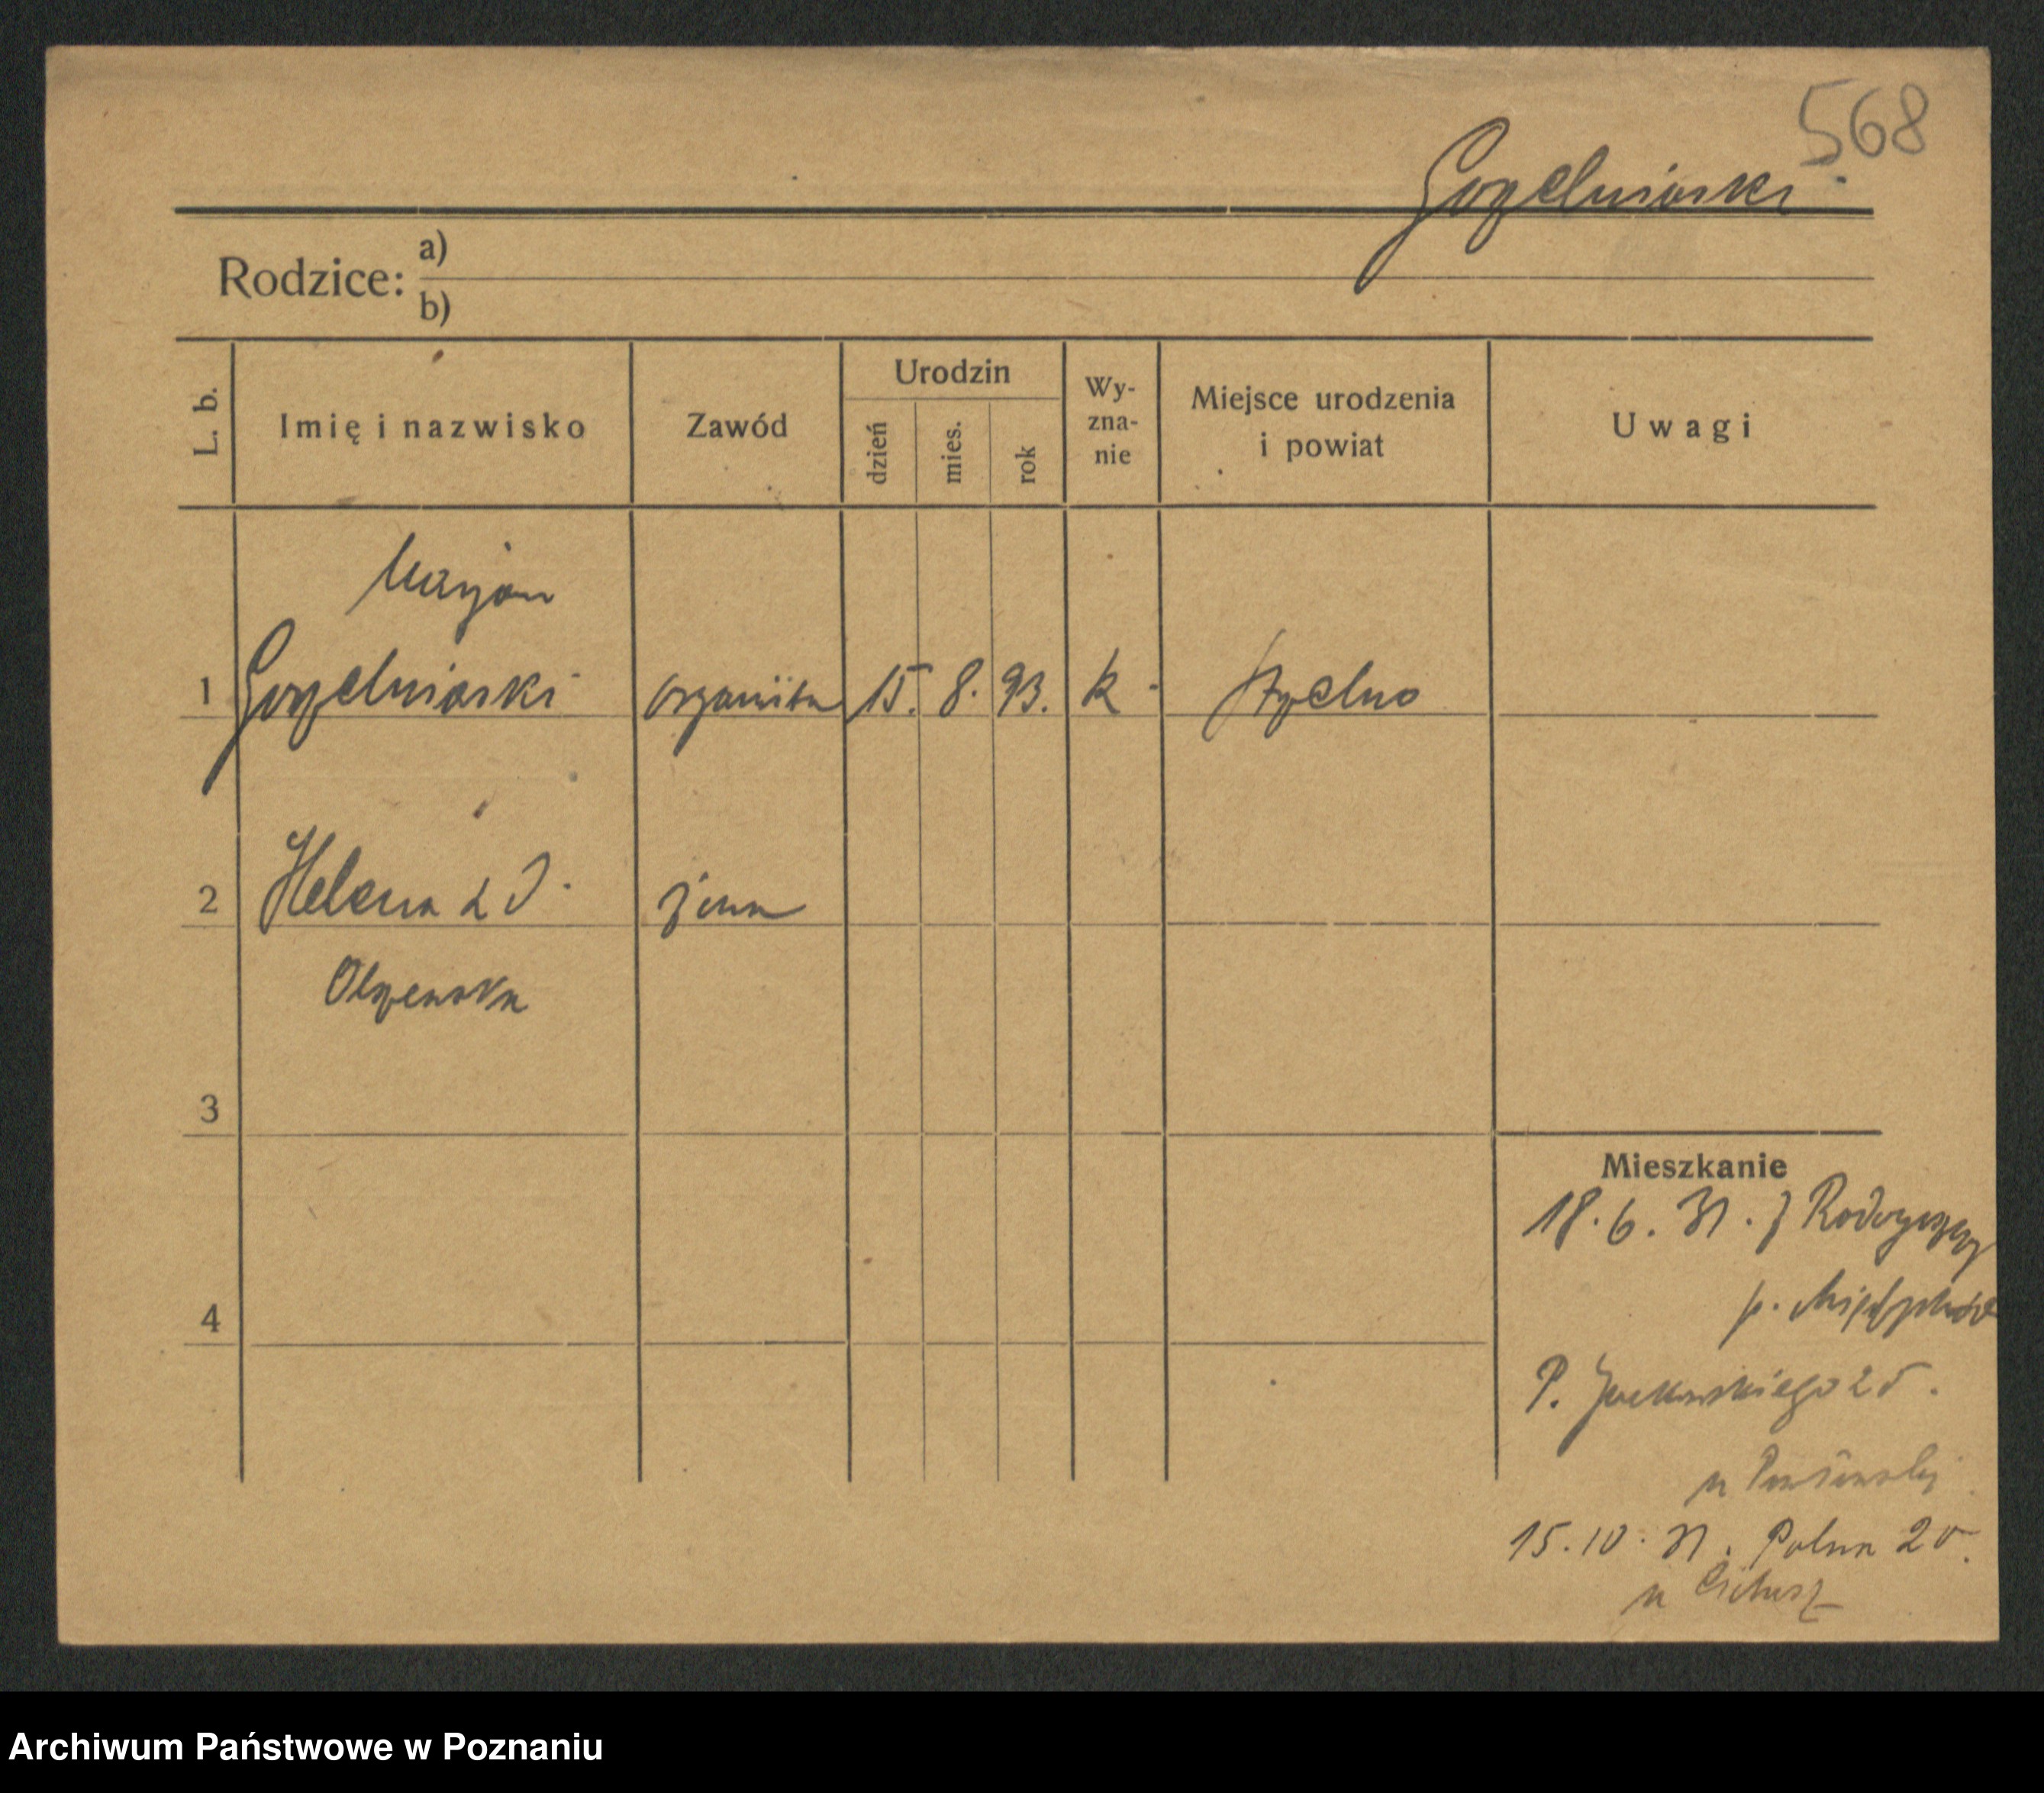 568
Gorzelniaski
Rodzice: a)
b)
L. b.
Imię i nazwisko
Zawód
Urodzin
dzień
mies.
rok
Wy-
zna-
nie
Miejsce urodzenia
i powiat
Uwagi
Marjan
1 Gorzelniaski organista 15. 8. 93. k. Strzelno
2 Helena z d. żona
Olszewska
3
4
Mieszkanie
18. 6. 31. z
p.
P. 25.
u
15. 10. 31. Polna 20.
u
Archiwum Państwowe w Poznaniu